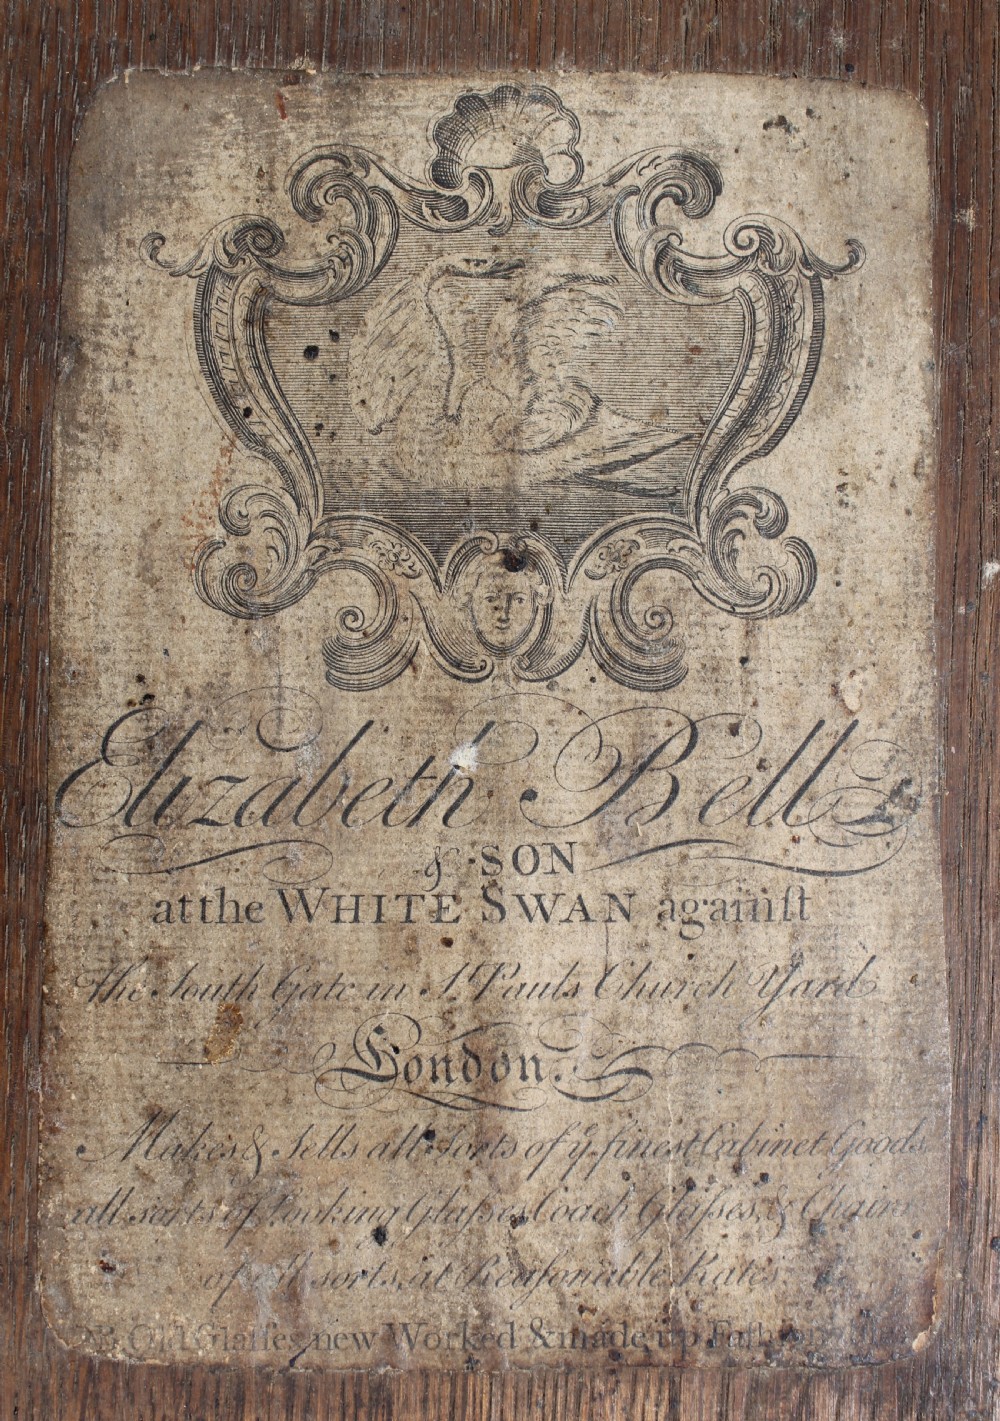 Elizabeth Bell
& SON
at the WHITE SWAN againſt
the South Gate in St. Pauls Church Yard
London.
Makes & Sells all Sorts of ye. finest Cabinet Goods
all sorts of Looking Glaſses Coach Glaſses, & Chairs
of all sorts, at Reaſonable Rates.
NB. Old Glaſses new Worked & made up Faſhionable